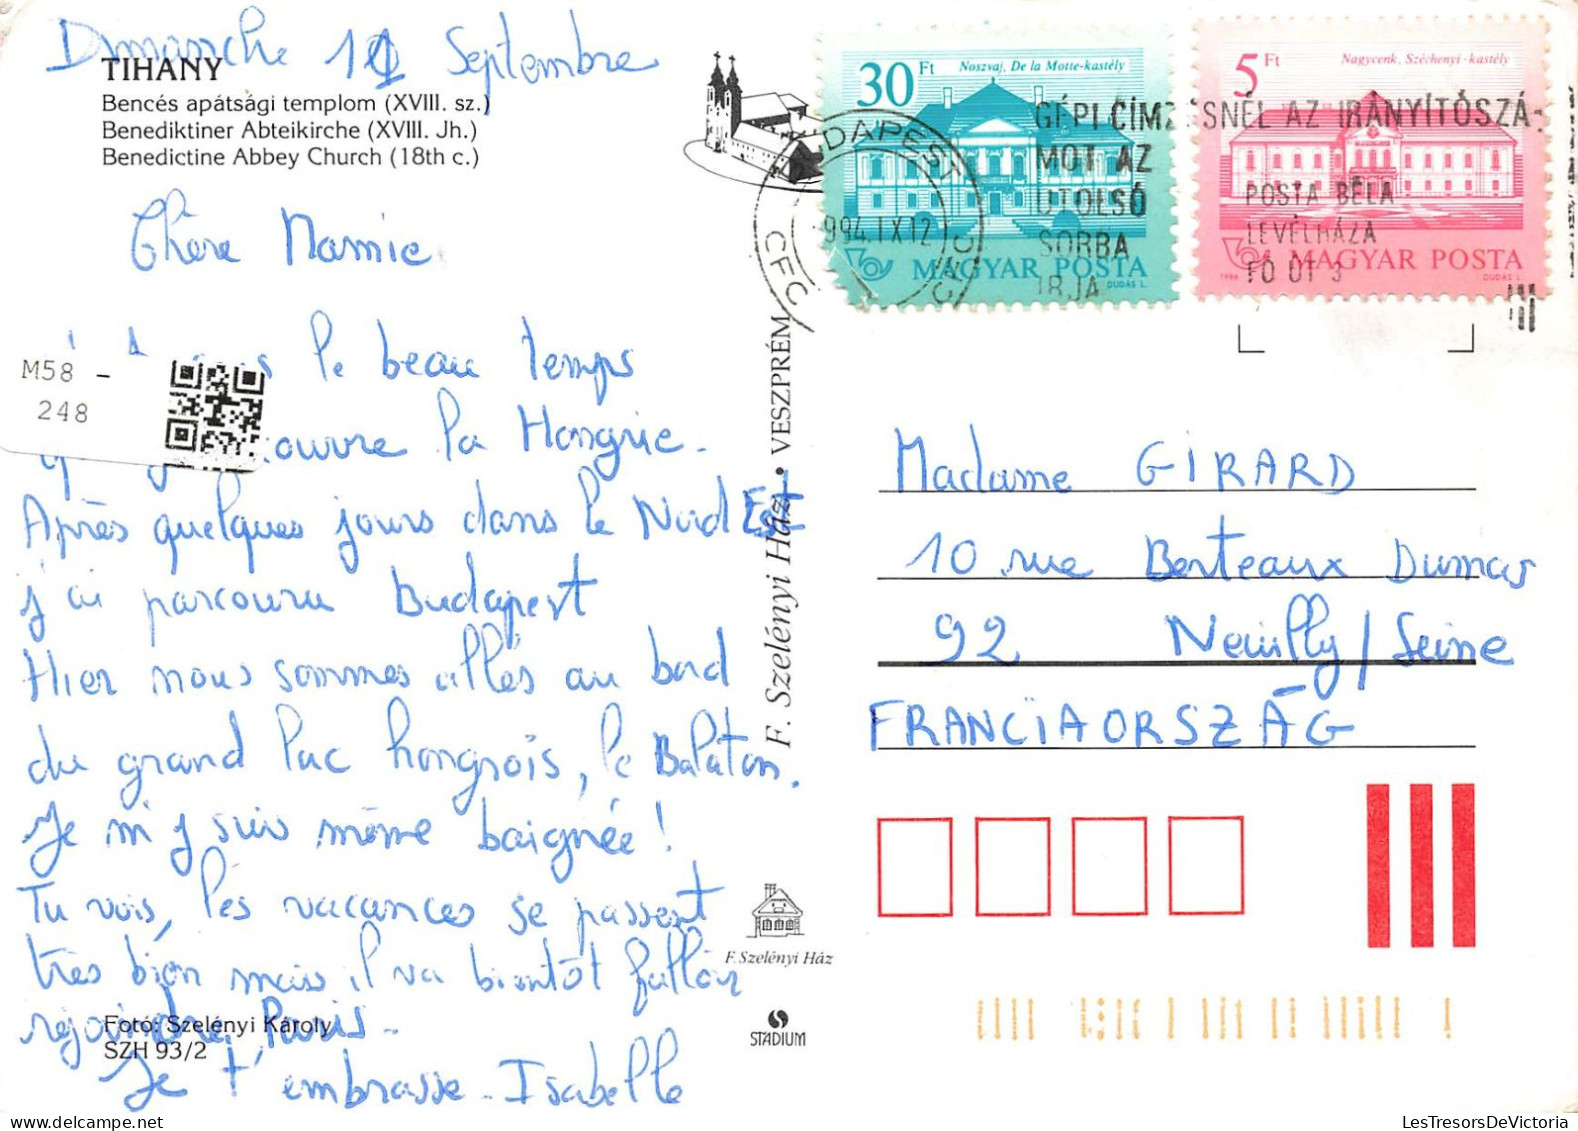 Dimanche 11 Septembre
TIHANY
Bencés apátsági templom (XVIII. sz.)
Benediktiner Abteikirche (XVIII. Jh.)
Benedictine Abbey Church (18th c.)
Chère Mamie
le beau temps
la Hongrie.
Après quelques jours dans le Nord Est
j'ai parcouru Budapest
Hier nous sommes allés au bord
du grand lac hongrois, le Balaton.
Je m'y suis même baignée !
Tu vois, les vacances se passent
très bien mais il va bientôt falloir
rejoindre Paris.
Je t'embrasse. Isabelle
Fotó: Szelényi Károly
SZH 93/2
M58 -
248
F. Szelényi Ház • VESZPRÉM
F. Szelényi Ház
STÁDIUM
30 Ft
Noszvaj, De la Motte-kastély
MAGYAR POSTA
DUDÁS L.
5 Ft
Nagycenk, Széchenyi-kastély
MAGYAR POSTA
1986
DUDÁS L.
DAPEST
994.IX12
CFC
GÉPI CÍMZÉSNÉL AZ IRÁNYÍTÓSZÁ-
MOT AZ
UTOLSÓ
SORBA
ÍRJA
POSTA BÉLA
LEVÉLHÁZA
FŐ ÚT 3
Madame GIRARD
10 rue Berteaux Dumas
92 Neuilly/Seine
FRANCIAORSZÁG
LesTresorsDeVictoria.com